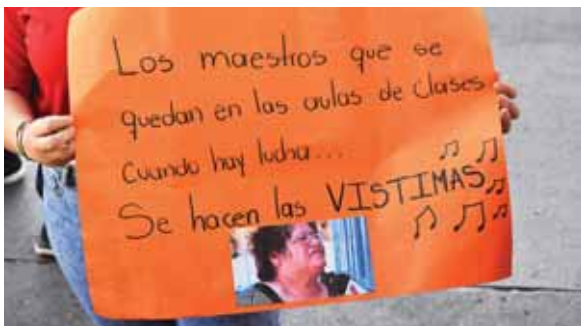 Los maestros que se
quedan en las aulas de clases
cuando hay lucha...
Se hacen las VISTIMAS